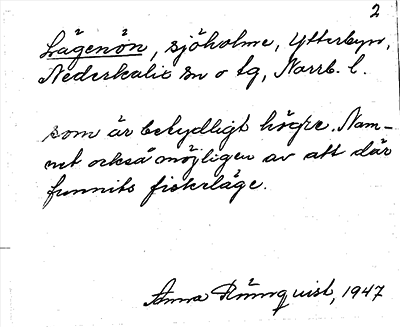 2
Lågenön, sjöholme, Ytterbyn,
Nederkalix sn o tg, Norrb. l.
som är betydligt högre. Nam-
net också möjligen av att där
funnits fiskerläge.
Anna Rönnquist, 1947